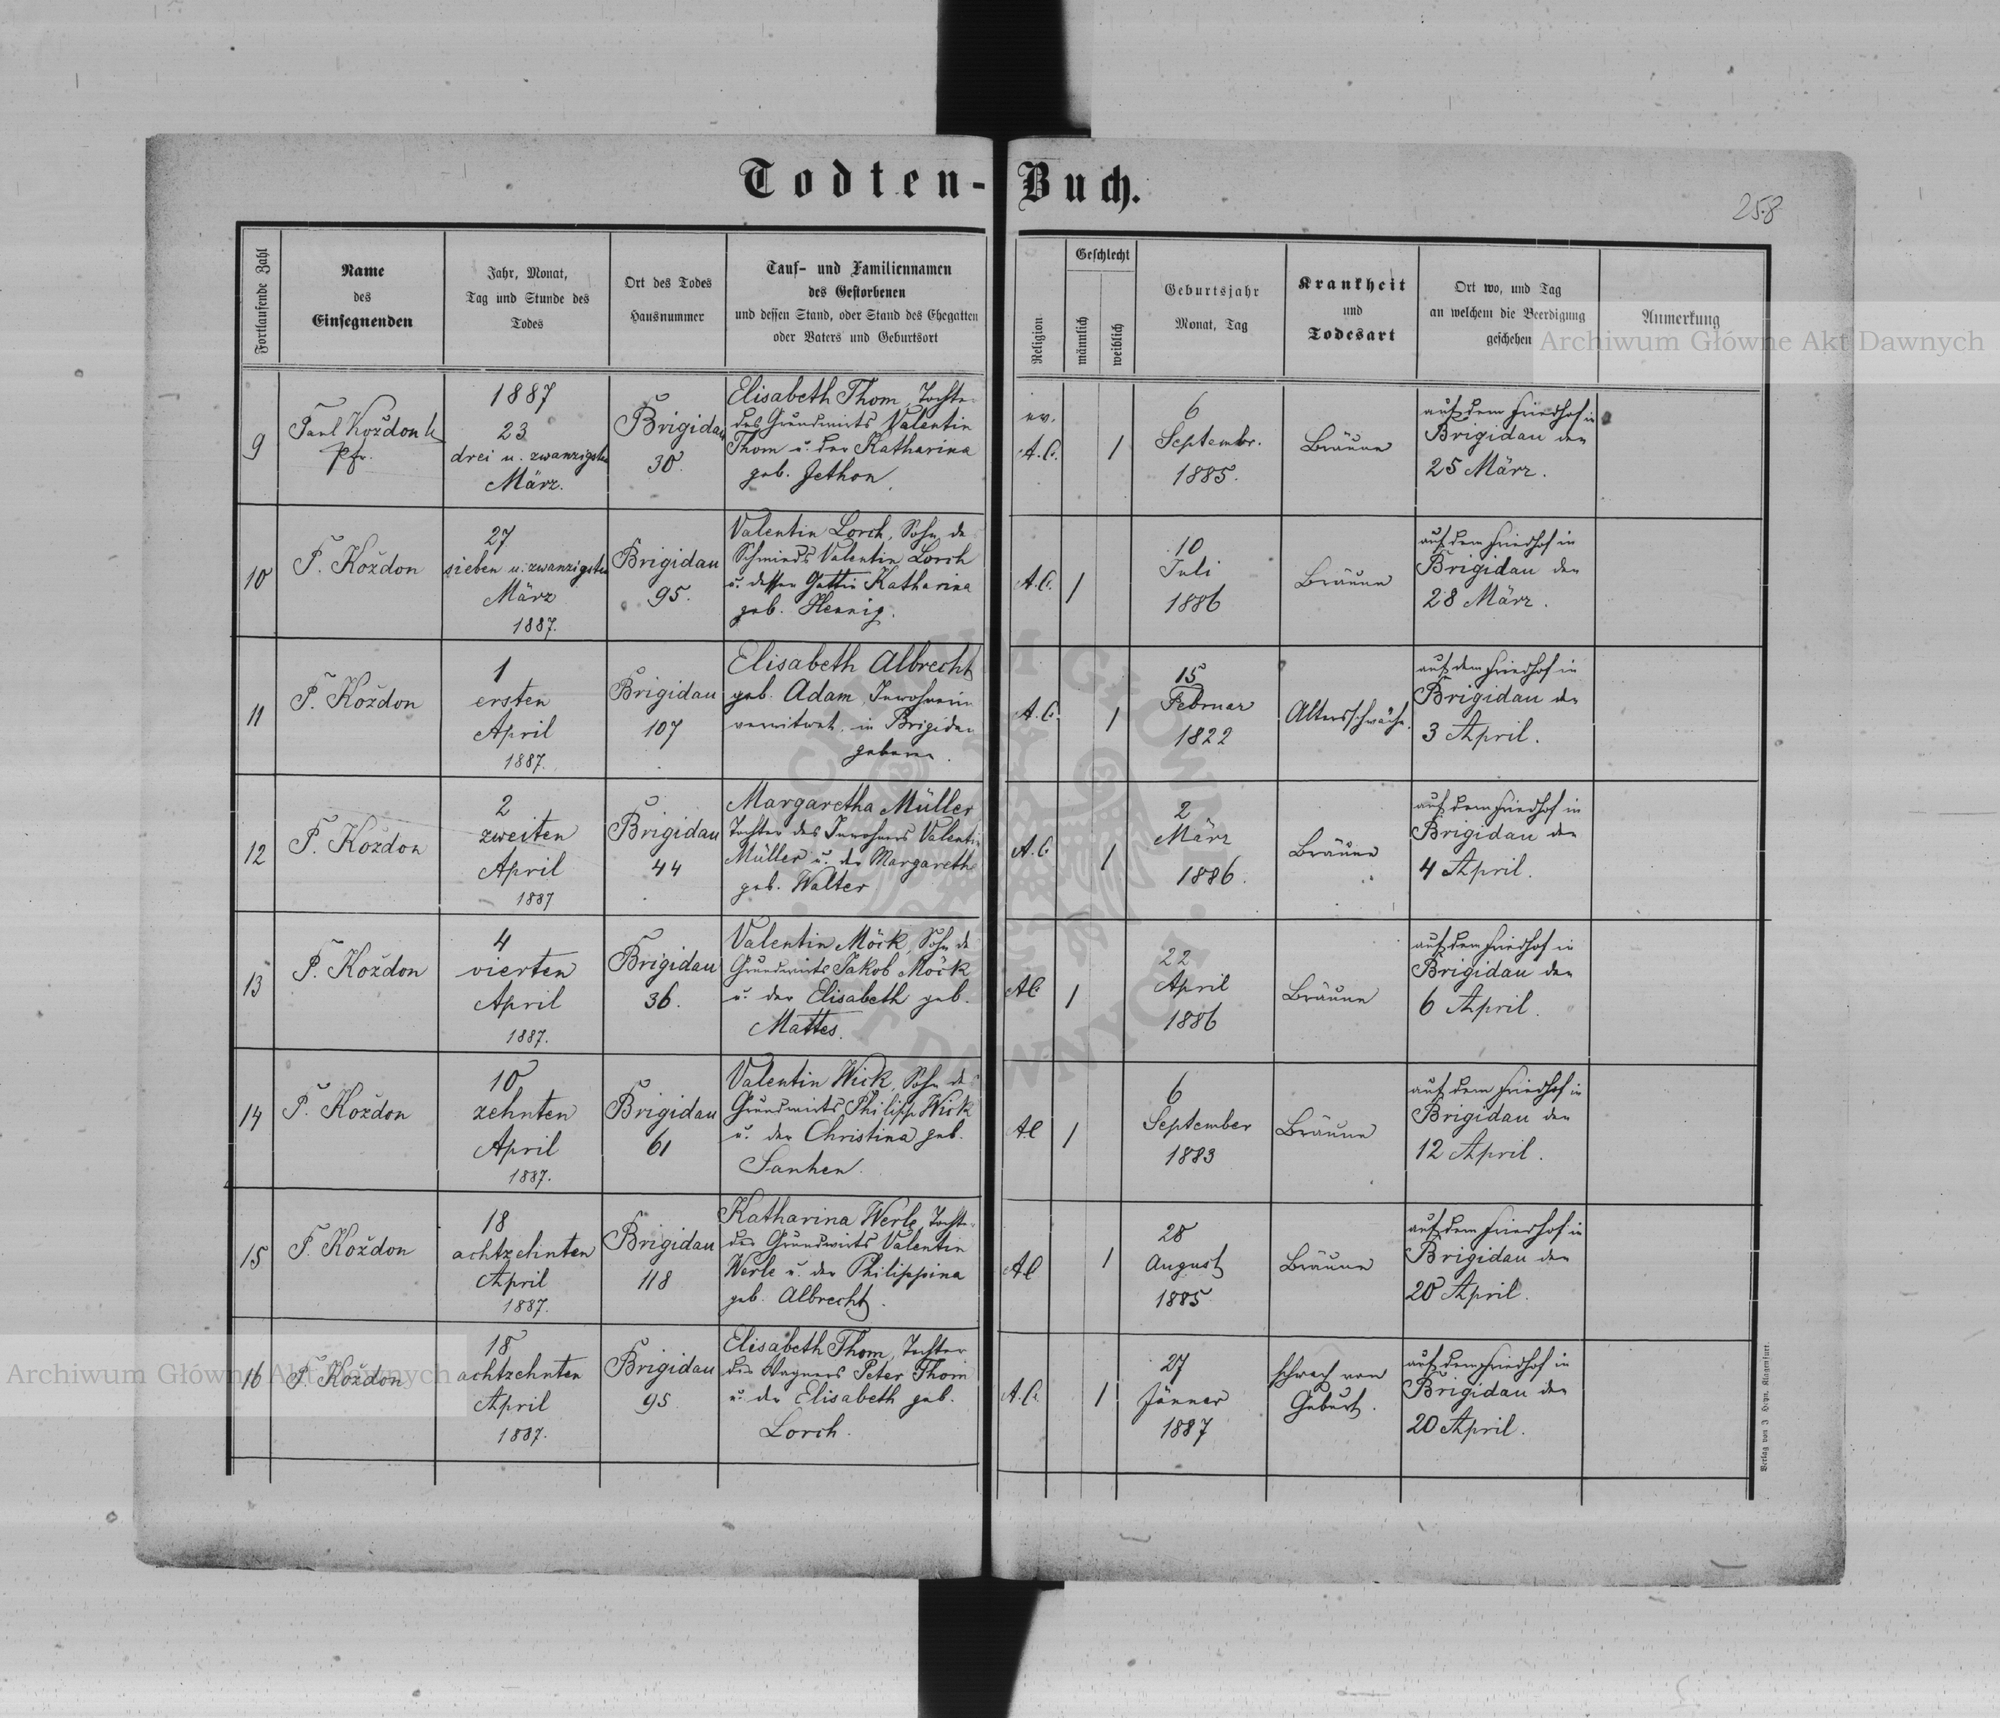 Todten-Buch.
258
Fortlaufende Zahl
Name
des
Einsegnenden
Jahr, Monat,
Tag und Stunde des
Todes
Ort des Todes
Hausnummer
Tauf- und Familiennamen
des Gestorbenen
und dessen Stand, oder Stand des Ehegatten
oder Vaters und Geburtsort
Religion
Geschlecht
männlich
weiblich
Geburtsjahr
Monat, Tag
Krankheit
und
Todesart
Ort wo, und Tag
an welchem die Beerdigung
geschehen
Anmerkung
9
Paul Koždon
Pfr.
1887
23
drei u. zwanzigsten
März.
Brigidau
30.
Elisabeth Thom, Tochter
des Grundwirts Valentin
Thom u. der Katharina
geb. Jethon.
ev.
A.C.
1
6
Septembr.
1885.
Bräune
auf dem Friedhof in
Brigidau den
25 März.
10
P. Koždon
27
sieben u. zwanzigsten
März
1887.
Brigidau
95.
Valentin Lorch, Sohn de
Schmieds Valentin Lorch
u. dessen Gattin Katharina
geb. Hennig.
A.C.
1
10
Juli
1886
Bräune
auf dem Friedhof in
Brigidau den
28 März.
11
P. Koždon
1
ersten
April
1887.
Brigidau
107
Elisabeth Albrecht
geb. Adam, Inwohnerin
verwitwet, in Brigidau
geboren.
A.C.
1
15
Februar
1822
Altersschwäche.
auf dem Friedhof in
Brigidau den
3 April.
12
P. Koždon
2
zweiten
April
1887
Brigidau
44
Margaretha Müller
Tochter des Inwohners Valentin
Müller u. der Margareth
geb. Walter
A.C
1
2
März
1886.
Bräune
auf dem Friedhof in
Brigidau den
4 April.
13
P. Koždon
4
vierten
April
1887.
Brigidau
36.
Valentin Möck, Sohn de
Grundwirts Jakob Möck
u. der Elisabeth geb.
Mattes.
AC
1
22
April
1886
Bräune
auf dem Friedhof in
Brigidau den
6 April.
14
P. Koždon
10
zehnten
April
1887.
Brigidau
61
Valentin Wick, Sohn de
Grundwirts Philipp Wick
u. der Christina geb.
Sanhen.
AC
1
6
September
1883
Bräune
auf dem Friedhof in
Brigidau den
12 April.
15
P. Koždon
18
achtzehnten
April
1887.
Brigidau
118
Katharina Werle, Tochter
des Grundwirts Valentin
Werle u. der Philippina
geb. Albrecht.
AC
1
28
August
1885
Bräune
auf dem Friedhof in
Brigidau den
20 April.
16
P. Koždon
18
achtzehnten
April
1887.
Brigidau
95
Elisabeth Thom, Tochter
des Wagners Peter Thom
u. der Elisabeth geb.
Lorch.
A.C.
1
27
Jänner
1887
schwach von
Geburt.
auf dem Friedhof in
Brigidau den
20 April.
Verlag von J. Heyn, Klagenfurt.
Archiwum Główne Akt Dawnych
Archiwum Główne Akt Dawnych
ARCHIWUM GŁÓWNE
AKT DAWNYCH